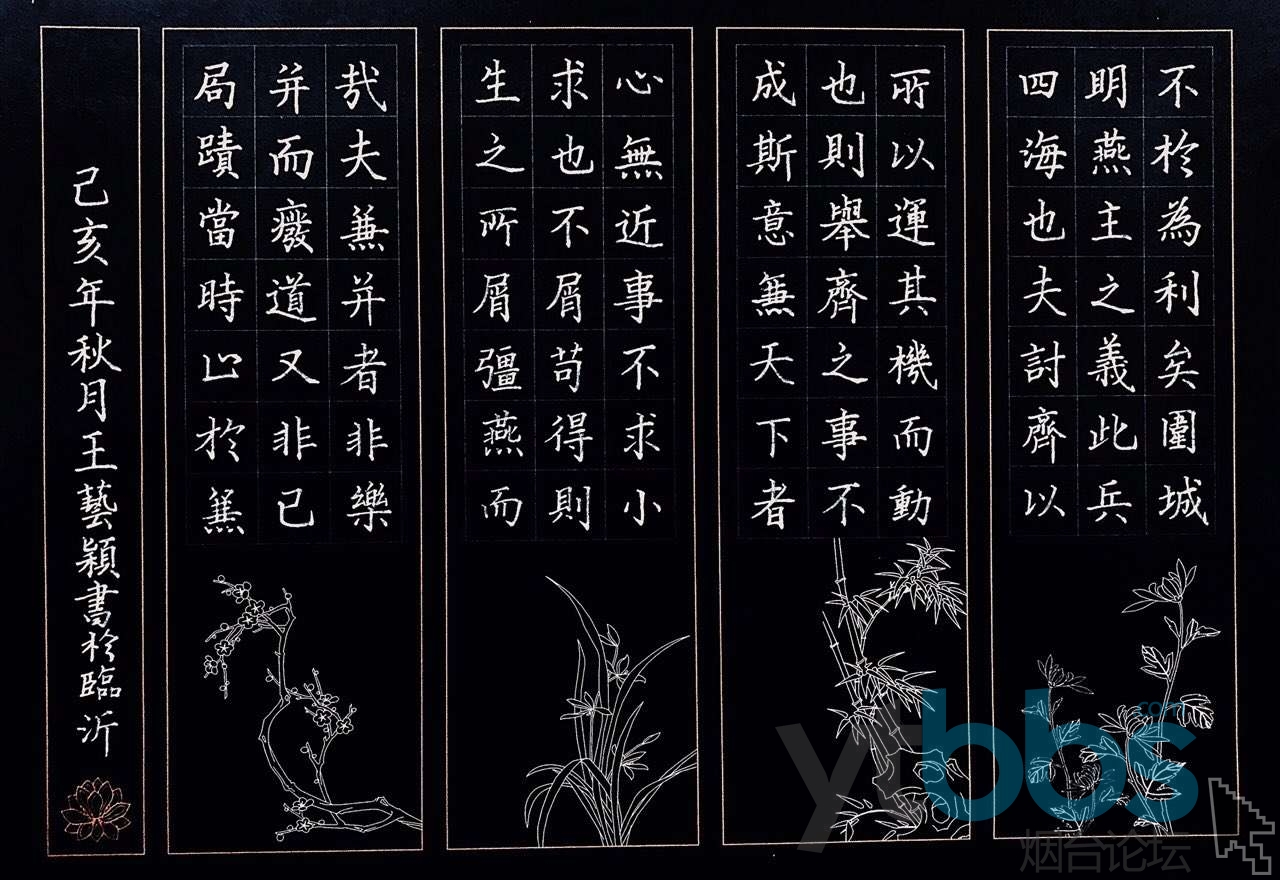 不於為利矣圍城
明燕主之義此兵
四海也夫討齊以
所以運其機而動
也則舉齊之事不
成斯意無天下者
心無近事不求小
求也不屑苟得則
生之所屑彊燕而
哉夫兼并者非樂
并而癈道又非已
局蹟當時止於兼
己亥年秋月王藝穎書於臨沂
ytbbs.com
烟台论坛